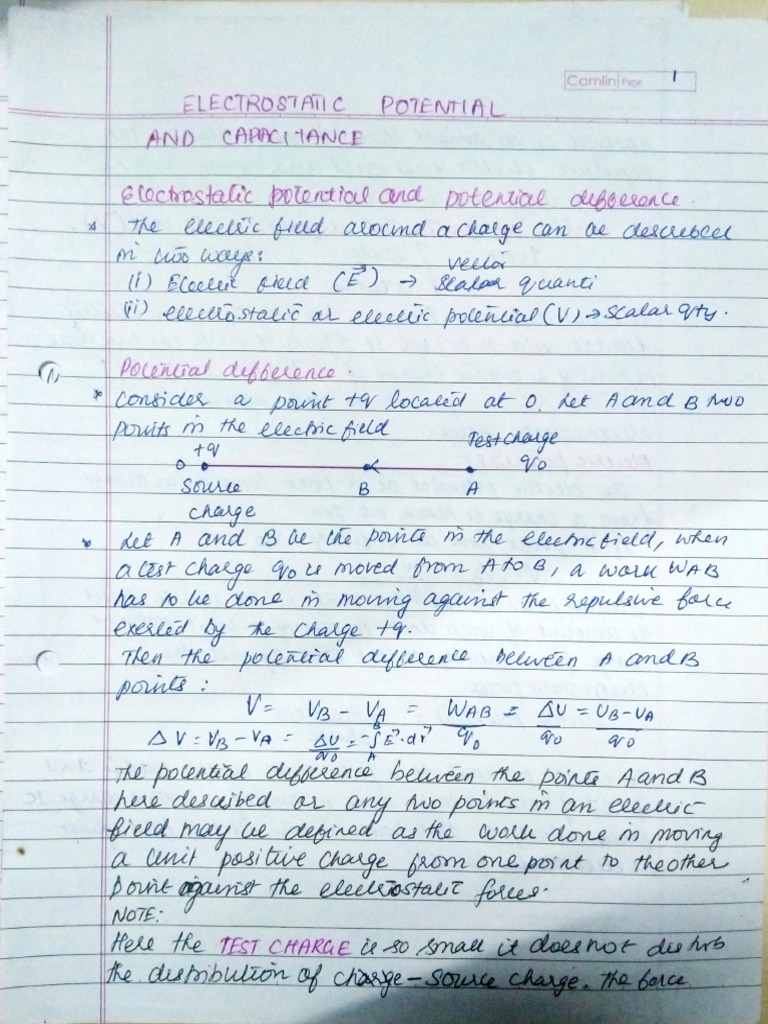 Camlin Page 1
ELECTROSTATIC POTENTIAL
AND CAPACITANCE
Electrostatic potential and potential difference.
* The electric field around a charge can be described
in two ways:
vector
(i) Electric field (E⃗) → Scalar quanti
(ii) electrostatic or electric potential (V) → scalar qty.
(1) Potential difference.
* Consider a point +q located at O. Let A and B two
points in the electric field
+q Test charge
O q₀
Source B A
charge
* Let A and B be the points in the electric field, when
a test charge q₀ is moved from A to B, a work WAB
has to be done in moving against the repulsive force
exerted by the charge +q.
Then the potential difference between A and B
points:
V = VB - VA = WAB/q₀ = ΔU/q₀ = UB-UA/q₀
ΔV = VB - VA = ΔU/q₀ = -∫ᴬᴮ E⃗.dr⃗
The potential difference between the points A and B
here described or any two points in an electric
field may be defined as the work done in moving
a unit positive charge from one point to the other
point against the electrostatic forces.
NOTE:
Here the TEST CHARGE is so small it does not disturb
the distribution of charge - source charge. The force